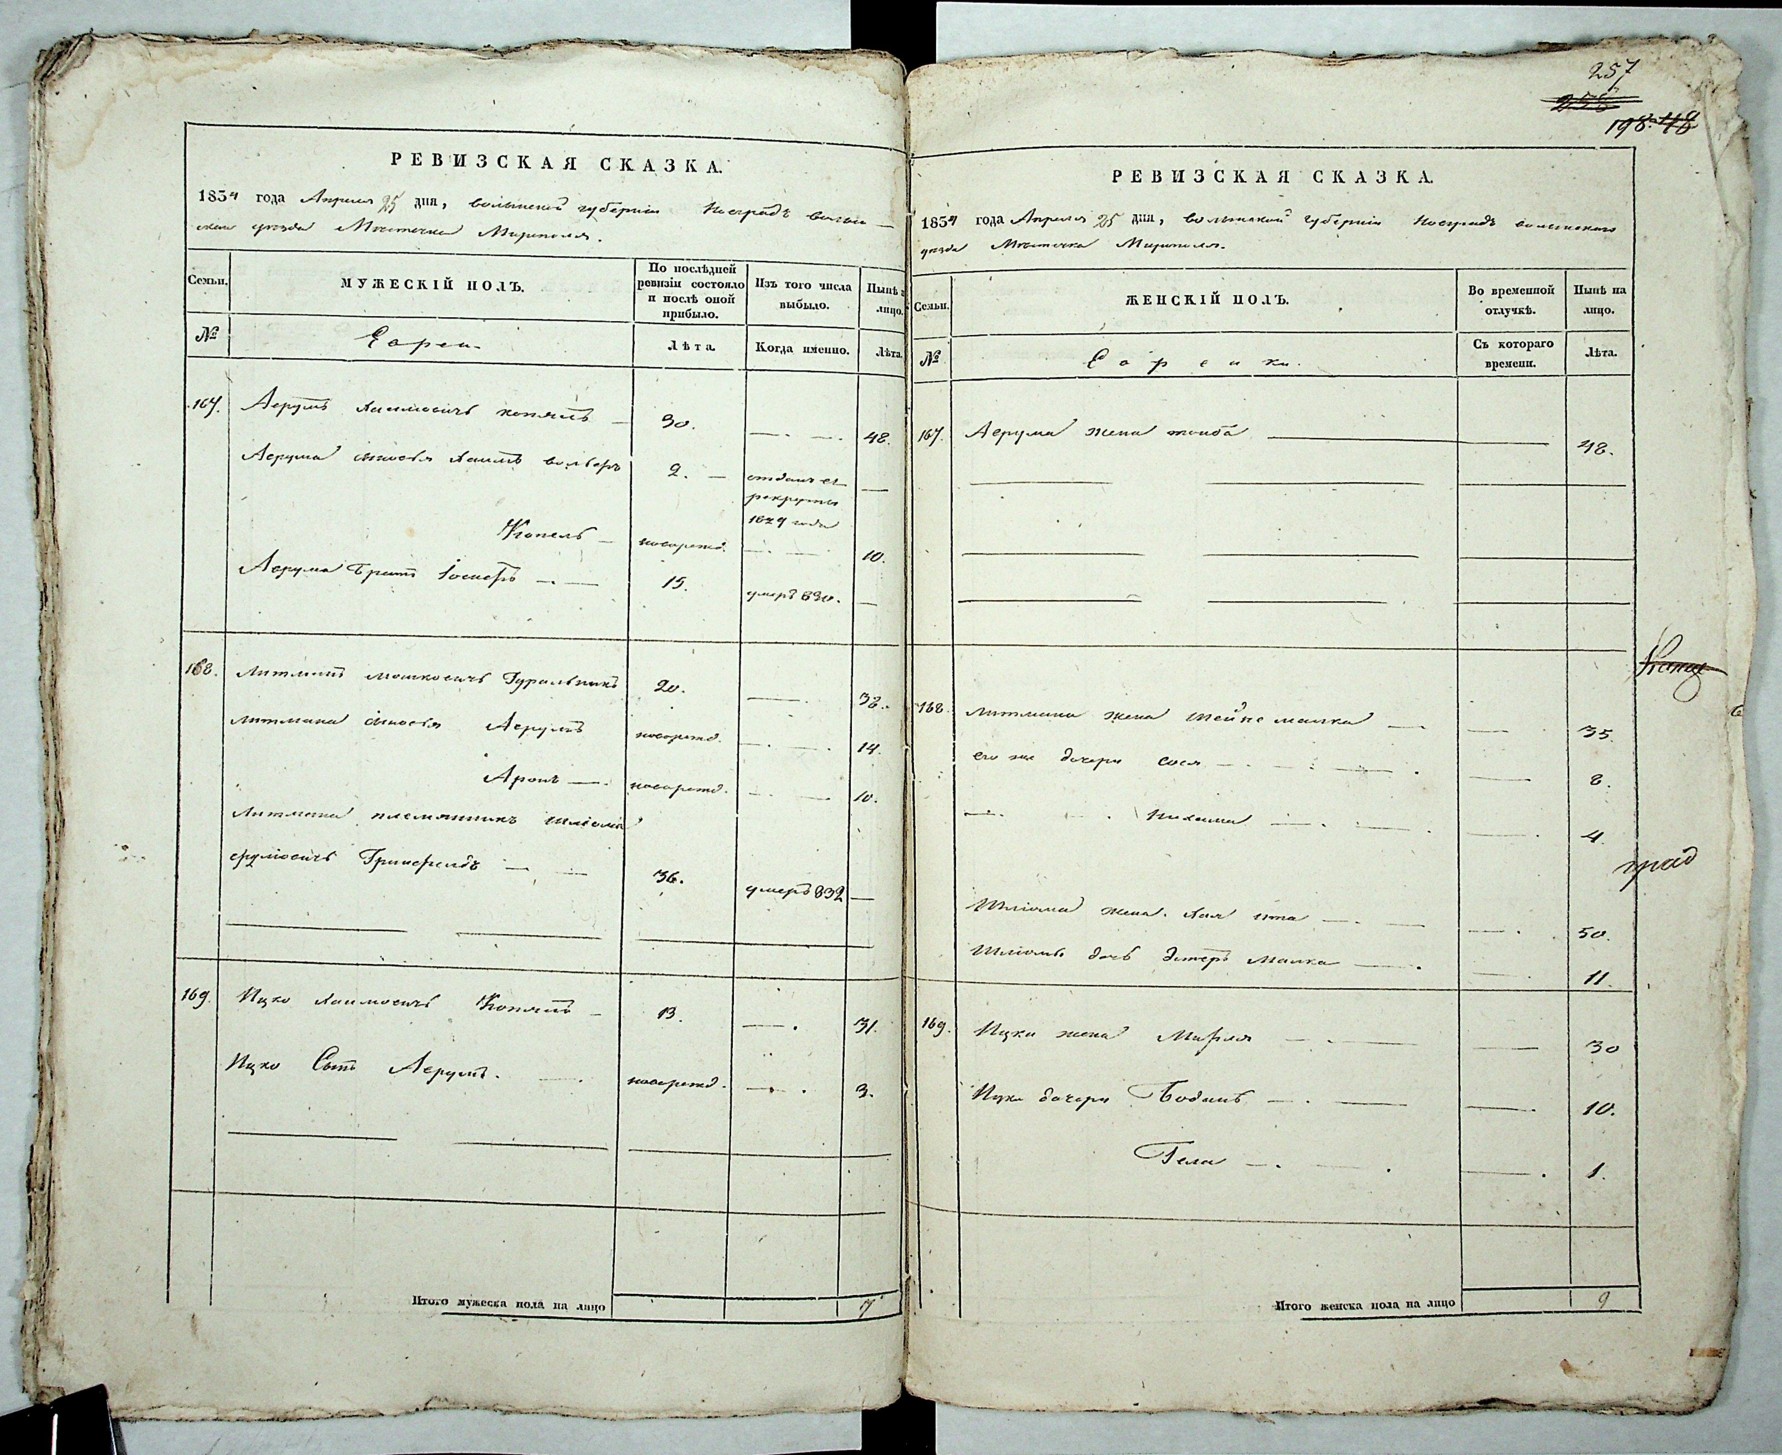 РЕВИЗСКАЯ СКАЗКА.
1834 года Апреля 25 дня, Волынской губернии Новградъ Волын
скаго уезда Местечка Мирополя.
Семьи.
МУЖЕСКІЙ ПОЛЪ.
По послѣдней ревизіи состояло и послѣ оной прибыло.
Изъ того числа выбыло.
Нынѣ на лицо.
№
Евреи.
Лѣта.
Когда именно.
Лѣта.
167. Лерумъ Хаимовичъ 30. 48.
Лерума сыновья Хаимъ Вольфъ 2. отданъ въ
рекруты
1829 года
Копель новорожд. 10.
Лерума братъ Іосифъ 15. умеръ 830.
168. Литманъ Мошковичъ Гуральникъ 20. 38.
Литмана сыновья Лерумъ новорожд. 14.
Аронъ новорожд. 10.
Литмана племянникъ Шліома
Сруліовичъ Гринфельдъ 36. умеръ 832
169. Ицко Хаимовичъ 13. 31.
Ицко Сынъ Лерумъ. новорожд. 3.
Итого мужеска пола на лицо 7
257
198.
РЕВИЗСКАЯ СКАЗКА.
1834 года Апреля 25 дня, Волынской губерніи Новградъ Волынскаго
уезда Местечка Мирополя.
Семьи.
ЖЕНСКІЙ ПОЛЪ.
Во временной отлучкѣ.
Нынѣ на лицо.
№
Еврейки.
Съ котораго времени.
Лѣта.
167. Лерума жена 48.
168. Литмана жена Шейне Малка 35.
его же дочери Сося 8.
Нихама 4.
град
Шліома жена Хая Ита 50.
Шліомы дочь Эстеръ Малка 11.
169. Ицки жена Мирля 30
Ицки дочери 10.
Гела 1.
Итого женска пола на лицо 9